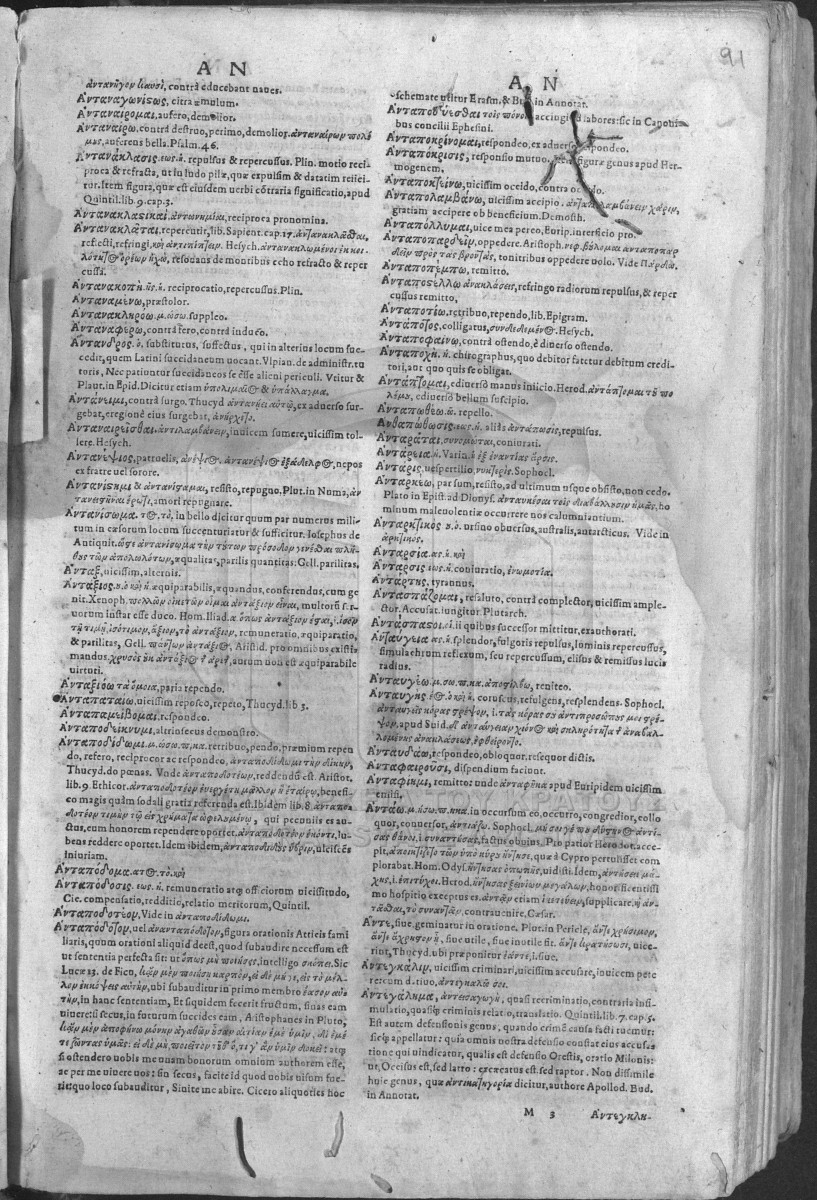 91
A N
ἀντανῆγον ναυσὶ, contrà educebant naues.
Ἀνταναγωνίσως, citra æmulum.
Ἀνταναίρομαι, aufero, demolior.
Ἀνταναιρῶ, contrà destruo, perimo, demolior. ἀνταναιρῶν πολέ
μους, auferens bella. Psalm. 46.
Ἀντανάκλασις. εως. ἡ. repulsus & repercussus. Plin. motio reci
proca & refracta, ut in ludo pilæ, quæ expulsim & datatim reijci
tur. Item figura, quæ est eiusdem uerbi cõtraria significatio, apud
Quintil. lib. 9. cap. 3.
Ἀντανακλαστικαὶ ἀντωνυμίαι, reciproca pronomina.
Ἀντανακλᾶται, repercutit, lib. Sapient. cap. 17. ἀντανακλᾶσθαι,
reflecti, refringi, καὶ ἀντιπίπτειν. Hesych. ἀντανακλωμένοι ἐκ κοι-
λοτάτων ὀρέων ἠχὼ, resonans de montibus echo refracto & reper
cussa.
Ἀντανακοπὴ. ῆς. ἡ. reciprocatio, repercussus. Plin.
Ἀνταναμένω, præstolor.
Ἀνταναπληρόω. μ. ώσω. suppleo.
Ἀνταναφέρω, contrà fero, contrà induco.
Ἄντανδρος. ὁ. substitutus, suffectus, qui in alterius locum suc
cedit, quem Latini succidaneum uocant. Vlpian. de administr. tu
toris, Nec patiuntur succidaneos se esse alieni periculi. Vtitur &
Plaut. in Epid. Dicitur etiam ὑπόλιμμα & ὑπάλλαγμα.
Ἀντάνειμι, contrà surgo. Thucyd. ἀντανῄει αὐτῷ, ex aduerso sur-
gebat, eregione eius surgebat, ἀνήρχετο.
Ἀνταναιρεῖσθαι. ἀντιλαμβάνειν, inuicem sumere, uicissim tol
lere. Hesych.
Ἀντανέψιος, patruelis, ἀνέψιος. ἀντανέψιος ἐξάδελφος, nepos
ex fratre uel sorore.
Ἀντανίστημι & ἀντανίσταμαι, resisto, repugno. Plut. in Numa, ἀν
τανίστασθαι ἔρωτι, amori repugnare.
Ἀντανίσωμα. τος. τὸ, in bello dicitur quum par numerus mili
tum in cæsorum locum succenturiatur & sufficitur. Iosephus de
Antiquit. ὥστε ἀντανίσωμα τὴν τούτων πρόσοδον γινέσθαι πλή
θους τῶν ἀπολωλότων, æqualitas, parilis quantitas: Gell. parilitas.
Ἀντὰξ, uicissim, alternis.
Ἀντάξιος. ου. ὁ καὶ ἡ. æquiparabilis, æquandus, conferendus, cum ge
nit. Xenoph. πολλῶν οἰκετῶν οἶμαι ἀντάξιον εἶναι, multorũ ser
uorum instar esse duco. Hom. Iliad. α ὅπως ἀντάξιον ἔσται, .i. ἴσον
τῇ τιμῇ, ἰσότιμον, ἄξιον, τὸ ἀντάξιον, remuneratio, æquiparatio,
& parilitas, Gell. πάντων ἀντάξιος. Aristid. pro omnibus existi
mandus. χρυσὸς οὐκ ἀντάξιος ἀρετῆς, aurum non est æquiparabile
uirtuti.
Ἀνταξιόω τὰ ὅμοια, paria rependo.
Ἀνταπαιτῶ, uicissim reposco, repeto, Thucyd. lib 3.
Ἀνταπαμείβομαι. respondeo.
Ἀνταποδείκνυμι, altrinsecus demonstro.
Ἀνταποδίδωμι. μ. ώσω. π. κα. retribuo, pendo, præmium repen
do, refero, reciprocor ac respondeo, ἀνταποδίδωμι τὴν δίκην,
Thucyd. do pœnas. Vnde ἀνταποδοτέον, reddendũ est. Aristot.
lib. 9. Ethicor. ἀνταποδοτέον ἐνεργέτῃ μᾶλλον ἢ ἑταίρῳ, benefi-
co magis quàm sodali gratia referenda est. Ibidem lib. 8. ἀνταπο
δοτέον τιμὴν τῷ εἰς χρήματα ὠφελουμένῳ, qui pecunijs est au-
ctus, eum honorem rependere oportet. ἀνταποδοτέον ἑκόντι, lu-
bens reddere oportet. Idem ibidem, ἀνταποδιδοὺς ὕβριν, ulciscẽs
iniuriam.
Ἀνταπόδομα. ατος. τὸ. καὶ
Ἀνταπόδοσις. εως. ἡ. remuneratio atque officiorum uicissitudo,
Cic. compensatio, redditio, relatio meritorum, Quintil.
Ἀνταποδοτέον. Vide in ἀνταποδίδωμι.
Ἀνταπόδοτον, uel ἀναντapόδοτον, figura orationis Atticis fami
liaris, quum orationi aliquid deest, quod subaudire necessum est
ut sententia perfecta sit: ut ὅπως μὴ ποιήσῃς, intelligo σκόπει. Sic
Lucæ 13. de Ficu, κἂν μὲν ποιήσῃ καρπὸν, εἰ δὲ μήγε, εἰς τὸ μέλ-
λον ἐκκόψεις αὐτὴν, ubi subauditur in primo membro ἔασον αὐ
τὴν, in hanc sententiam, Et siquidem fecerit fructum, sinas eam
uiuere: si secus, in futurum succides eam, Aristophanes in Pluto,
κἂν μὲν ἀποφήνω μόνην ἀγαθῶν ἁπάντων οὖσαν αἰτίαν ἐμὲ ὑμῖν, δι᾽ ἐμέ
τε ζῶντας ὑμᾶς: εἰ δὲ μὴ, ποιεῖτον τοῦθ᾽ ὅ, τι γ᾽ ἂν ὑμῖν δοκεῖ: atque
si ostendero uobis me unam bonorum omnium authorem esse,
ac per me uiuere uos: sin secus, facite id quod uobis uisum fue-
rit: quo loco subauditur, Sinite me abire. Cicero aliquoties hoc
A N
schemate utitur Erasm. & Bud. in Annotat.
Ἀνταποδύεσθαι τοῖς πόνοις, accingi ad labores: sic in Canoni-
bus concilij Ephesini.
Ἀνταποκρίνομαι, respondeo, ex aduerso respondeo.
Ἀνταπόκρισις, responsio mutuo. Item figuræ genus apud Her-
mogenem.
Ἀνταποκτείνω, uicissim occido, contra occido.
Ἀνταπολαμβάνω, uicissim accipio. ἀνταπολαμβάνειν χάριν,
gratiam accipere ob beneficium. Demosth.
Ἀνταπόλλυμαι, uice mea pereo, Eurip. interficio pro.
Ἀνταποπαρδεῖν, oppedere. Aristoph. νεφ. βούλομαι ἀνταποπαρ
δεῖν πρὸς τὰς βροντάς, tonitribus oppedere uolo. Vide πάρδω.
Ἀνταποπέμπω, remitto.
Ἀνταποστέλλω ἀνακλάσεις, refringo radiorum repulsus, & reper
cussus remitto.
Ἀνταποτίω, retribuo, rependo, lib. Epigram.
Ἀντάποτος, colligatus, συνδεδεμένος. Hesych.
Ἀνταποφαίνω, contrà ostendo, è diuerso ostendo.
Ἀνταποχὴ. ἡ. chirographus, quo debitor fatetur debitum credi
tori, aut quo quis se obligat.
Ἀντάπτομαι, ediuerso manus inijcio. Herod. ἀντάπτομαι τοῦ πο
λέμου, ediuerso bellum suscipio.
Ἀνταπωθέω. ῶ. repello.
Ἀνθαπώθωσις. εως. ἡ. aliâs ἀντάπωσις, repulsus.
Ἀνταράται, συνομόται, coniurati.
Ἀντάρεια. ἡ. Varin. ἡ ἐξ ἐναντίας ἄρσις.
Ἀντάρις, uespertilio, νυκτερίς. Sophocl.
Ἀνταρκέω, par sum, resisto, ad ultimum usque obsisto, non cedo.
Plato in Epist. ad Dionys. ἀνταρκέσαι τοῖς διαβάλλουσιν ἡμᾶς, ho
minum maleuolentiæ occurrere nos calumniantium.
Ἀνταρκτικὸς. ου. ὁ. ursino obuersus, australis, antarcticus. Vide in
ἀρκτικός.
Ἀνταρσία. ας. ἡ. καὶ
Ἄνταρσις. εως. ἡ. coniuratio, ἐνωμοτία.
Ἀντάρτης, tyrannus.
Ἀντασπάζομαι, resaluto, contrà complector, uicissim amplector.
ctor. Accusat. iungitur. Plutarch.
Ἀντάσπασοι. οἱ. ij quibus successor mittitur, exauthorati.
Ἀνταύγεια. ας. ἡ. splendor, fulgoris repulsus, luminis repercussus,
simulachrum reflexum, seu repercussum, elisus & remissus lucis
radius.
Ἀνταυγέω. μ. σω. π. κα. ἀποστίλβω, reniteo.
Ἀνταυγὴς. έος. ὁ. καὶ ἡ. coruscus, refulgens, resplendens. Sophocl.
ἀνταυγεῖς κόρας στρέφων, .i. τὰς κόρας ἐξ ἀντιπροσώπου μοι τρέ
φων, apud Suid. ἡ ἀνταύγεια χιόνος καὶ σκληρότητα ἀναβαλ-
λομένης ἀνακλάσεως, ἐφθείροντο.
Ἀνταυδάω, respondeo, obloquor. resequor dictis.
Ἀνταφαιροῦσι, dispendium faciunt.
Ἀνταφίημι, remitto: unde ἀνταφῆκα apud Euripidem uicissim
emisi.
Ἀντάω. μ. ήσω. π. ηκα. in occursum eo, occurro, congredior, collo
quor, conuersor, ἀντιάζω. Sophocl.
sas. factus obuius. Pro patior Herodot. acce-
plorabat. Hom. Odys.
mo hospitio exceptus es.
contrauenire, Cæsar.
Ἄντε, siue, geminatur in oratione. Plut. in Pericle, ἄντε χρήσιμον,
ἄντε ἄχρηστον ᾖ, siue utile, siue inutile sit. ἄντε κρατήσωσι, uice-
rint, Thucyd. ubi præponitur ἐάντε, i. siue.
Ἀντεγκαλεῖν, uicissim criminari, uicissim accusare, inuicem pete
re ἀντεγκαλῶ σοι.
Ἀντεγκάλημα, ἀντεισαγωγὴ, quasi recriminatio, contraria insi
mulatio, quasique criminis relatio, translatio. Quintil. lib. 7. cap. 5.
Est autem defensionis genus, quando crimẽ causa facti tuemur:
sicque appellatur: quia omnis nostra defensio constat eius accusa
tione qui uindicatur, qualis est defensio Orestis, oratio Milonis:
ut, Occisus est, sed latro: exsecatus est, sed raptor. Non dissimile
huic genus, quæ ἀντικατηγορία dicitur, authore Apollod. Bud.
in Annotat.
M 3
Ἀντεγκλη-